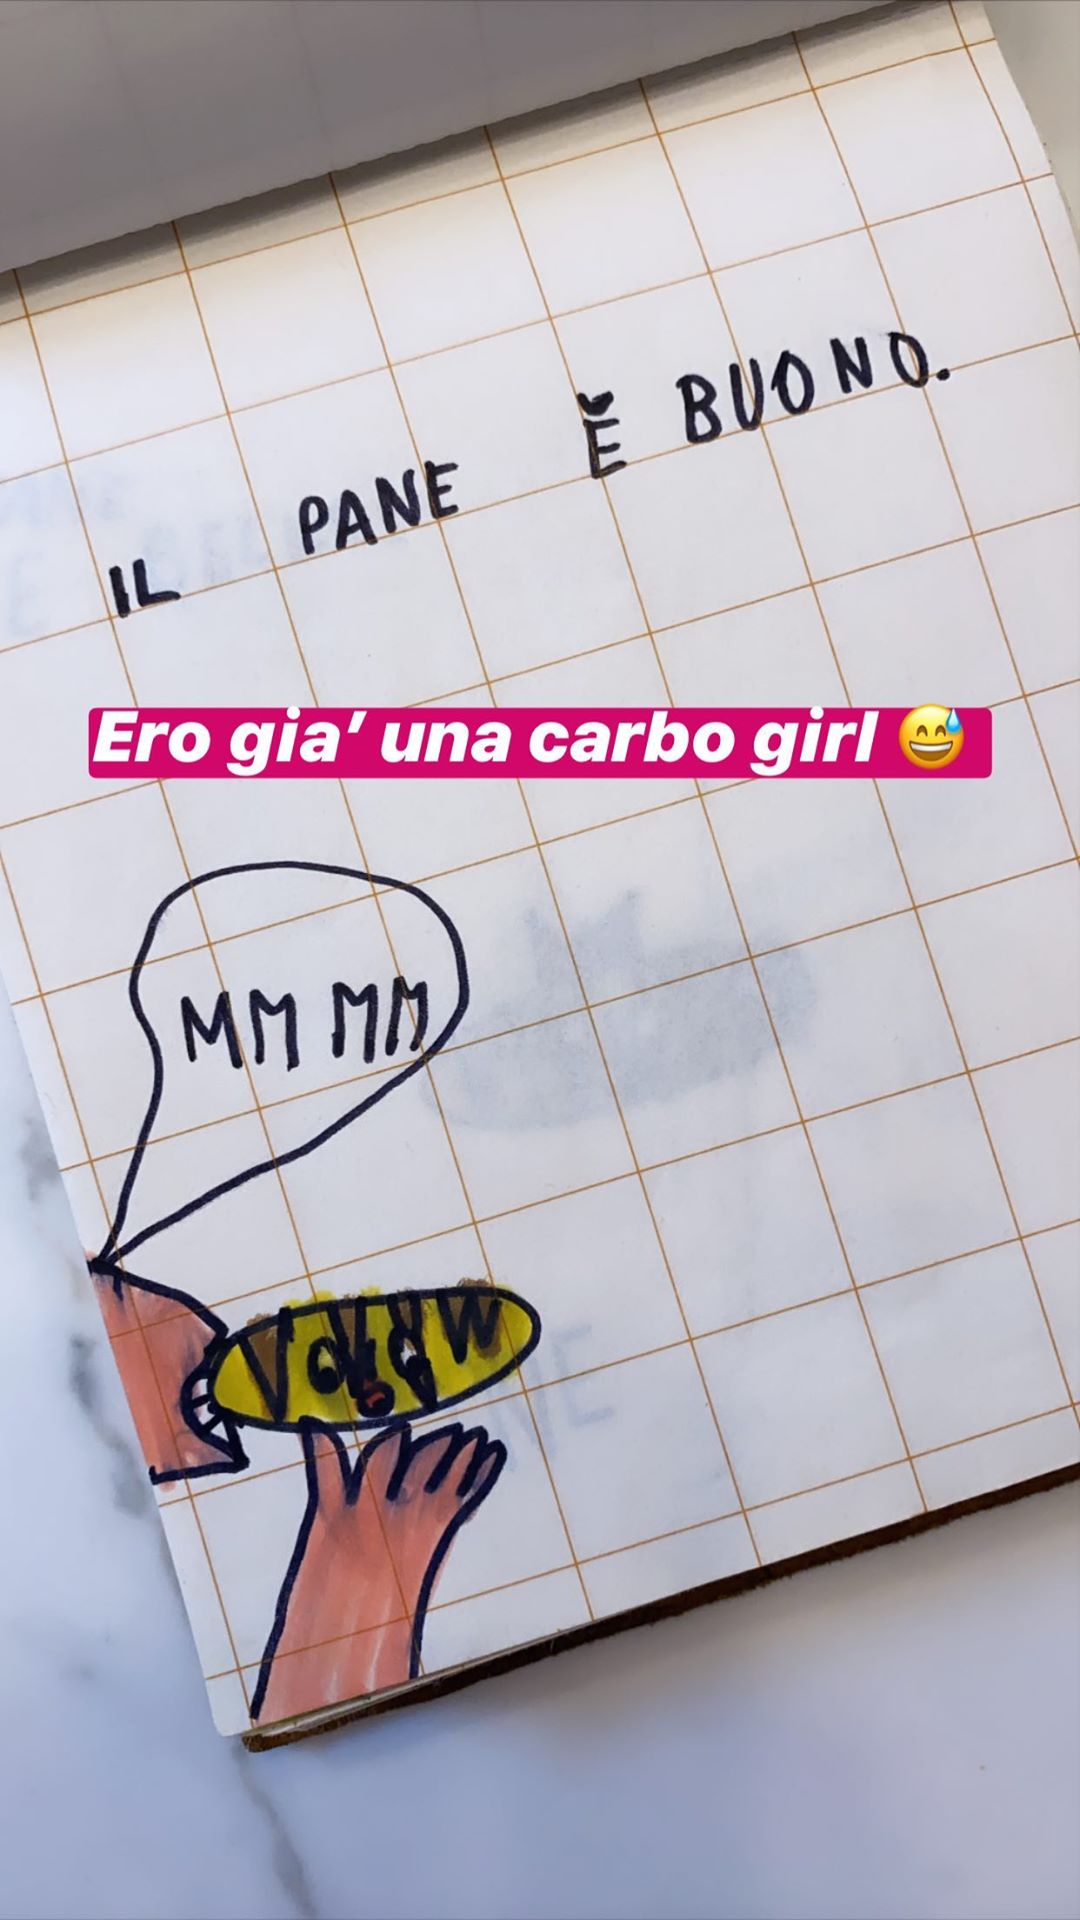 IL PANE È BUONO.
Ero gia' una carbo girl 😅
MM MM